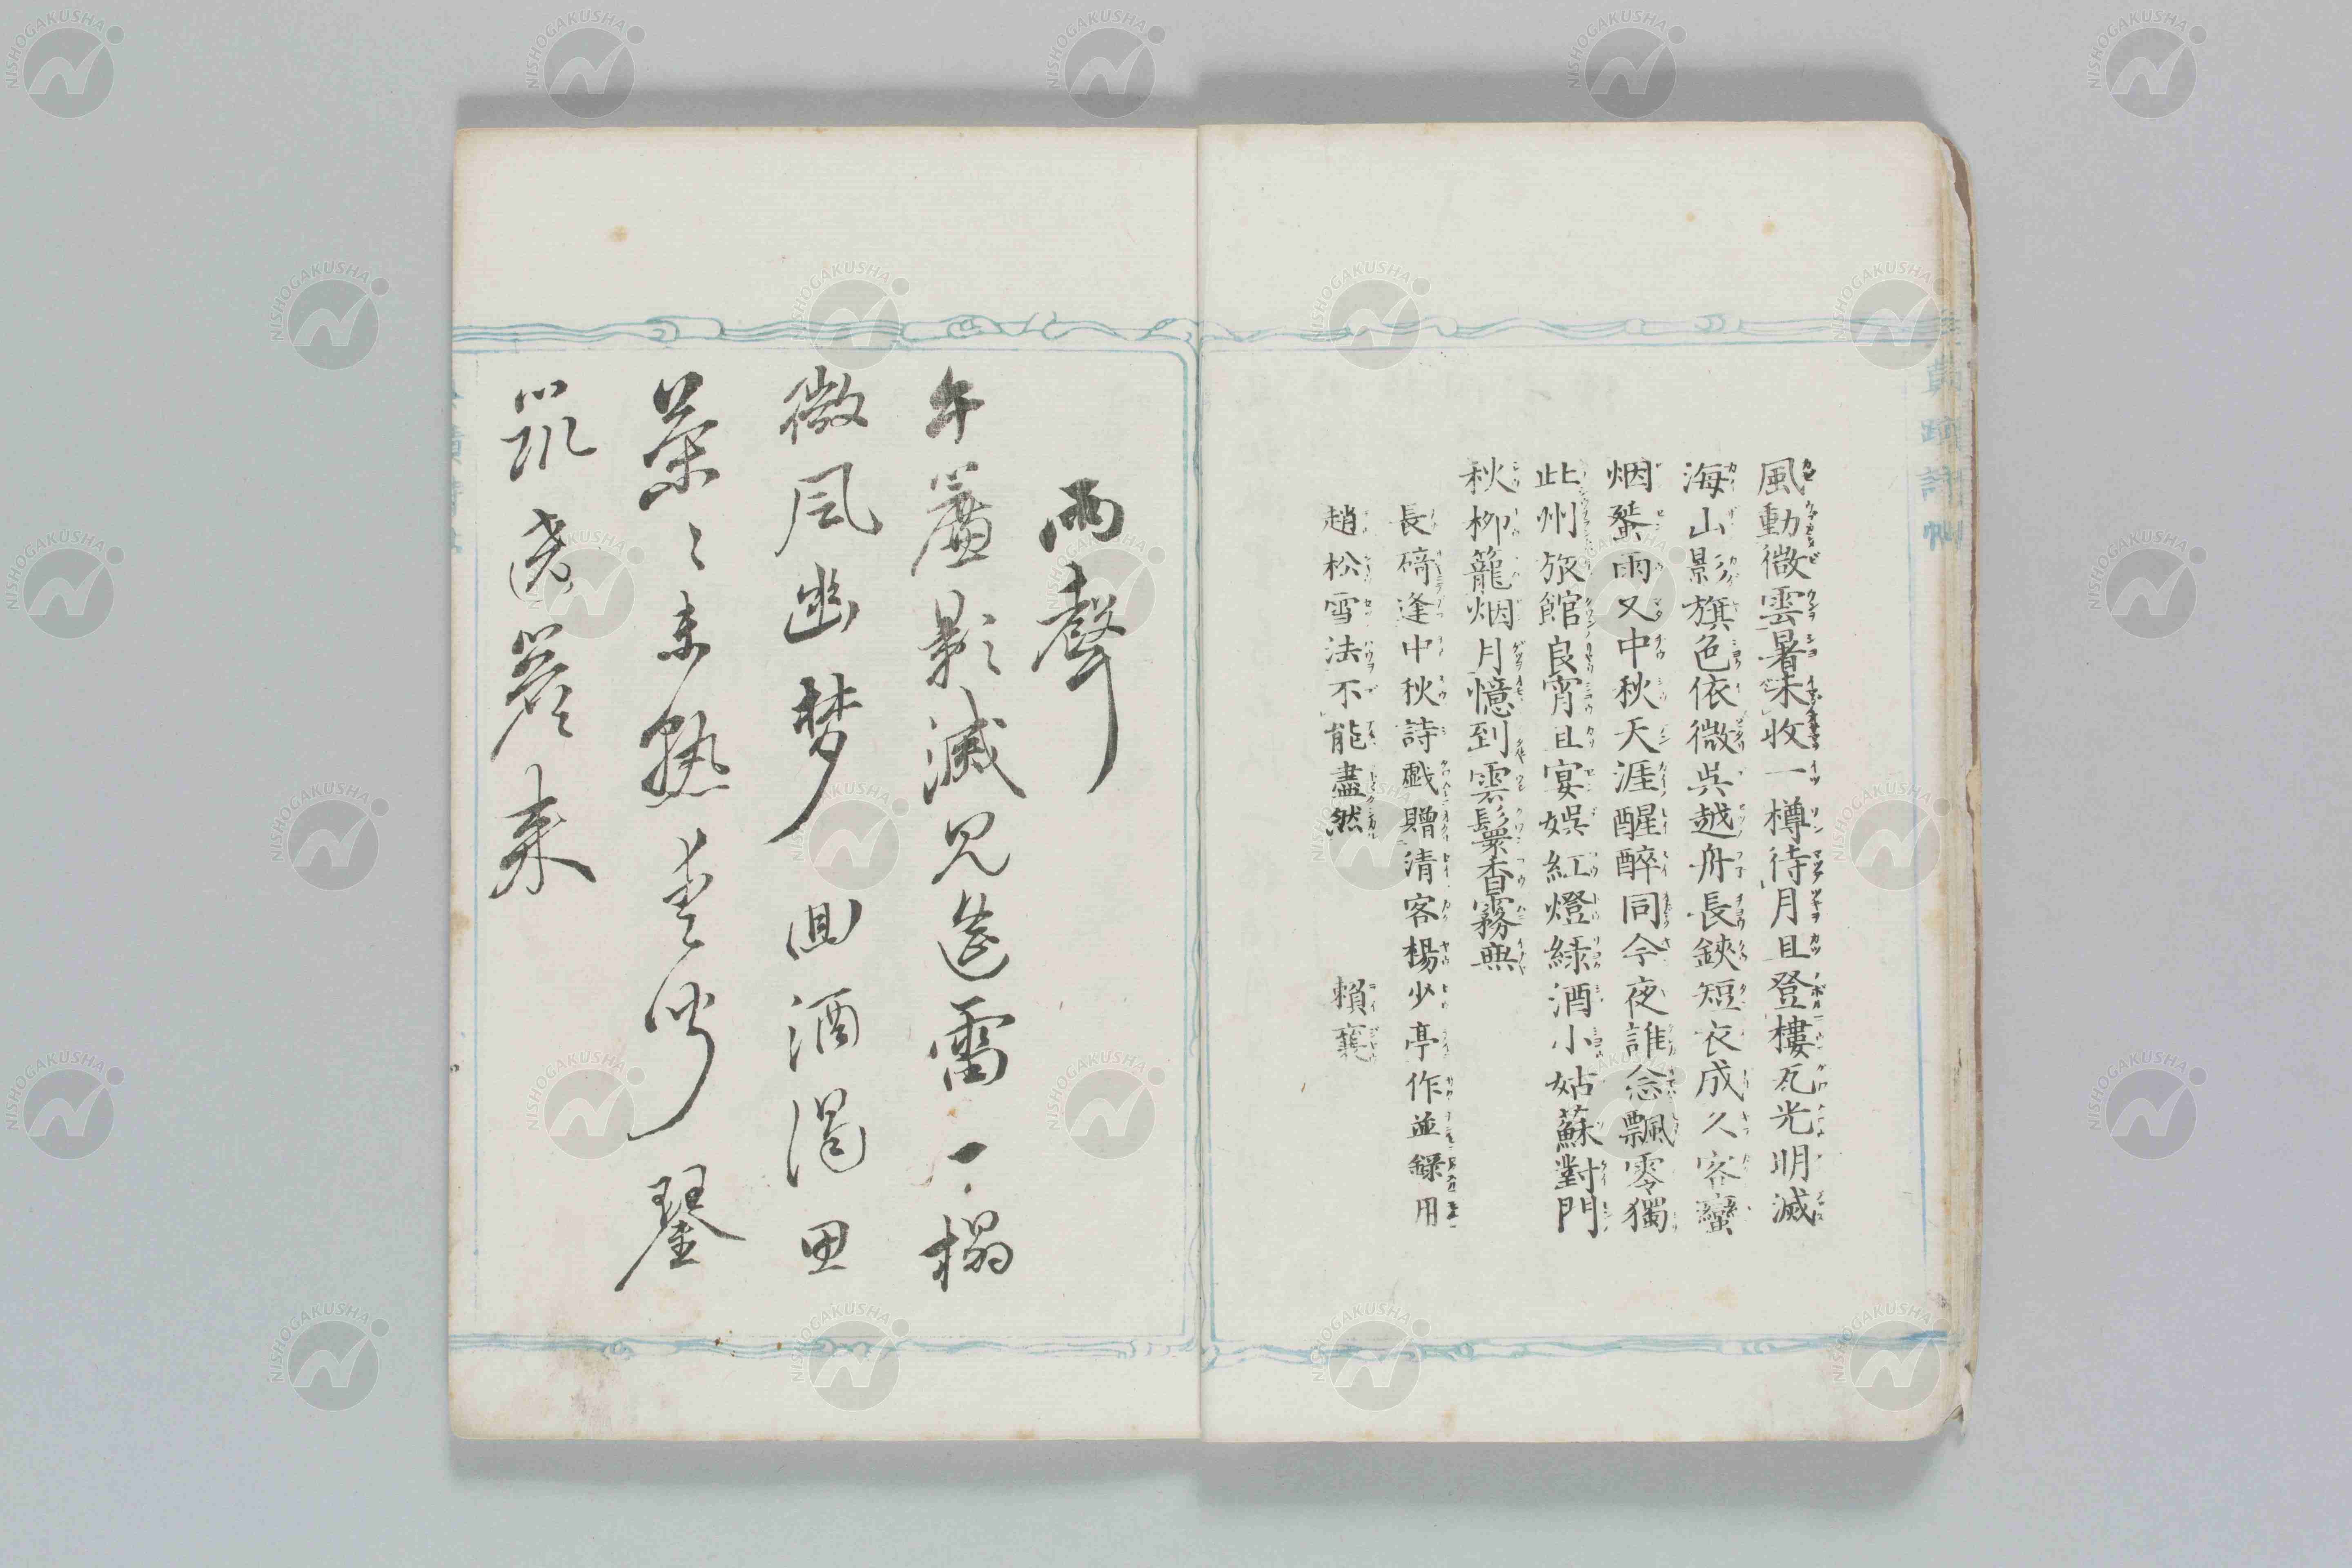 風動微雲暑未收一樽待月且登樓瓦光明滅
海山影旗色依微呉越舟長鋏短衣成久客蠻
烟蜑雨又中秋天涯醒醉同今夜誰念飄零獨
此州旅館良宵且宴娯紅燈綠酒小姑蘇對門
秋柳籠烟月憶到雲鬟香霧無
長碕逢中秋詩戲贈清客楊少亭作並錄用
趙松雪法不能盡然　賴襄
雨聲
午簾影滅見遙雷一榻
微風幽梦回酒渴思
茶〻未熟愛聽琴
筑繞簷来
NISHOGAKUSHA